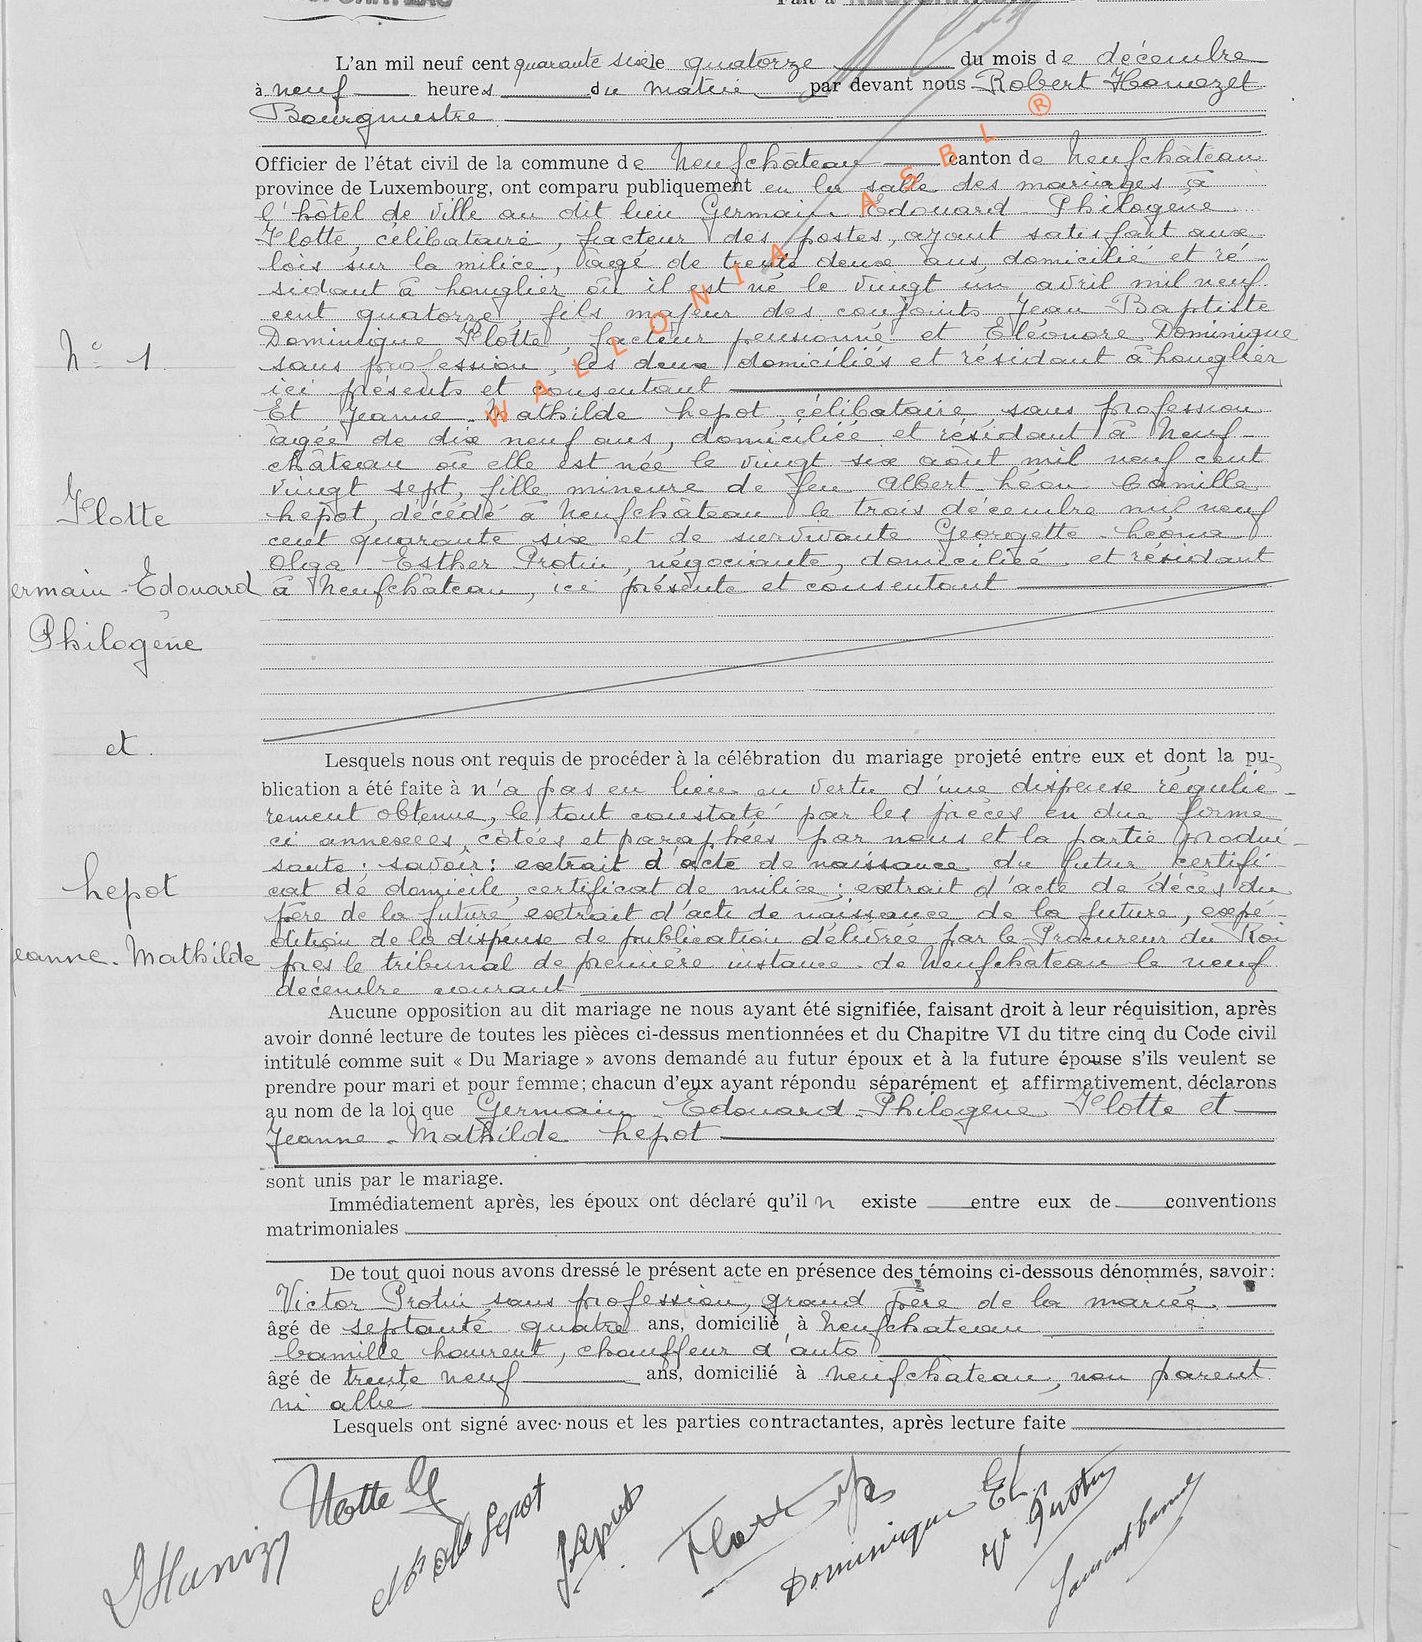 L'an mil neuf cent quarante six le quatorze du mois de décembre
à neuf heures du matin par devant nous Robert
Bourgmestre
Officier de l'état civil de la commune de Neufchâteau canton de Neufchâteau
province de Luxembourg, ont comparu publiquement en la salle des mariages à
l'hôtel de ville au dit lieu Germain Edouard Philogène
Flotte, célibataire, facteur des postes, ayant satisfait aux
lois sur la milice, âgé de trente deux ans, domicilié et ré-
sidant à Longlier où il est né le vingt un avril mil neuf
cent quatorze, fils majeur des conjoints Jean Baptiste
Dominique Flotte, facteur pensionné et Eléonore Dominique
N° 1
sans profession, les deux domiciliés et résidant à Longlier
ici présents et consentant
Et Jeanne Mathilde Lepot, célibataire, sans profession
âgée de dix neuf ans, domiciliée et résidant à Neuf-
château où elle est née le vingt six août mil neuf cent
vingt sept, fille mineure de feu Albert Léon Camille
Lepot, décédé à Neufchâteau le trois décembre mil neuf
Flotte
cent quarante six et de survivante Georgette Léona
Olga Esther Protin, négociante, domiciliée et résidant
ermain-Edouard
à Neufchâteau, ici présente et consentant
Philogène
et
Lesquels nous ont requis de procéder à la célébration du mariage projeté entre eux et dont la pu-
blication a été faite à n'a pas eu lieu en vertu d'une dispense réguliè-
rement obtenue, le tout constaté par les pièces en due forme
ci annexées, côtées et paraphées par nous et la partie produi-
sante; savoir: extrait d'acte de naissance du futur certifi-
Lepot
cat de domicile, certificat de milice; extrait d'acte de décès du
père de la future, extrait d'acte de naissance de la future, expé-
dition de la dispense de publication délivrée par le Procureur du Roi
eanne-Mathilde
près le tribunal de première instance de Neufchateau le neuf
décembre courant
Aucune opposition au dit mariage ne nous ayant été signifiée, faisant droit à leur réquisition, après
avoir donné lecture de toutes les pièces ci-dessus mentionnées et du Chapitre VI du titre cinq du Code civil
intitulé comme suit « Du Mariage » avons demandé au futur époux et à la future épouse s'ils veulent se
prendre pour mari et pour femme; chacun d'eux ayant répondu séparément et affirmativement, déclarons
au nom de la loi que Germain-Edouard-Philogène Flotte et
Jeanne-Mathilde Lepot
sont unis par le mariage.
Immédiatement après, les époux ont déclaré qu'il n existe entre eux de conventions
matrimoniales
De tout quoi nous avons dressé le présent acte en présence des témoins ci-dessous dénommés, savoir:
Victor Protin sans profession, grand père de la mariée
âgé de septante quatre ans, domicilié à Neufchateau
Camille Laurent, chauffeur d'auto
âgé de trente neuf ans, domicilié à Neufchâteau, non parent
ni allié
Lesquels ont signé avec nous et les parties contractantes, après lecture faite
Flotte G
Lepot
Dominique El.
Vr Protin
WALLONIA ASBL ®